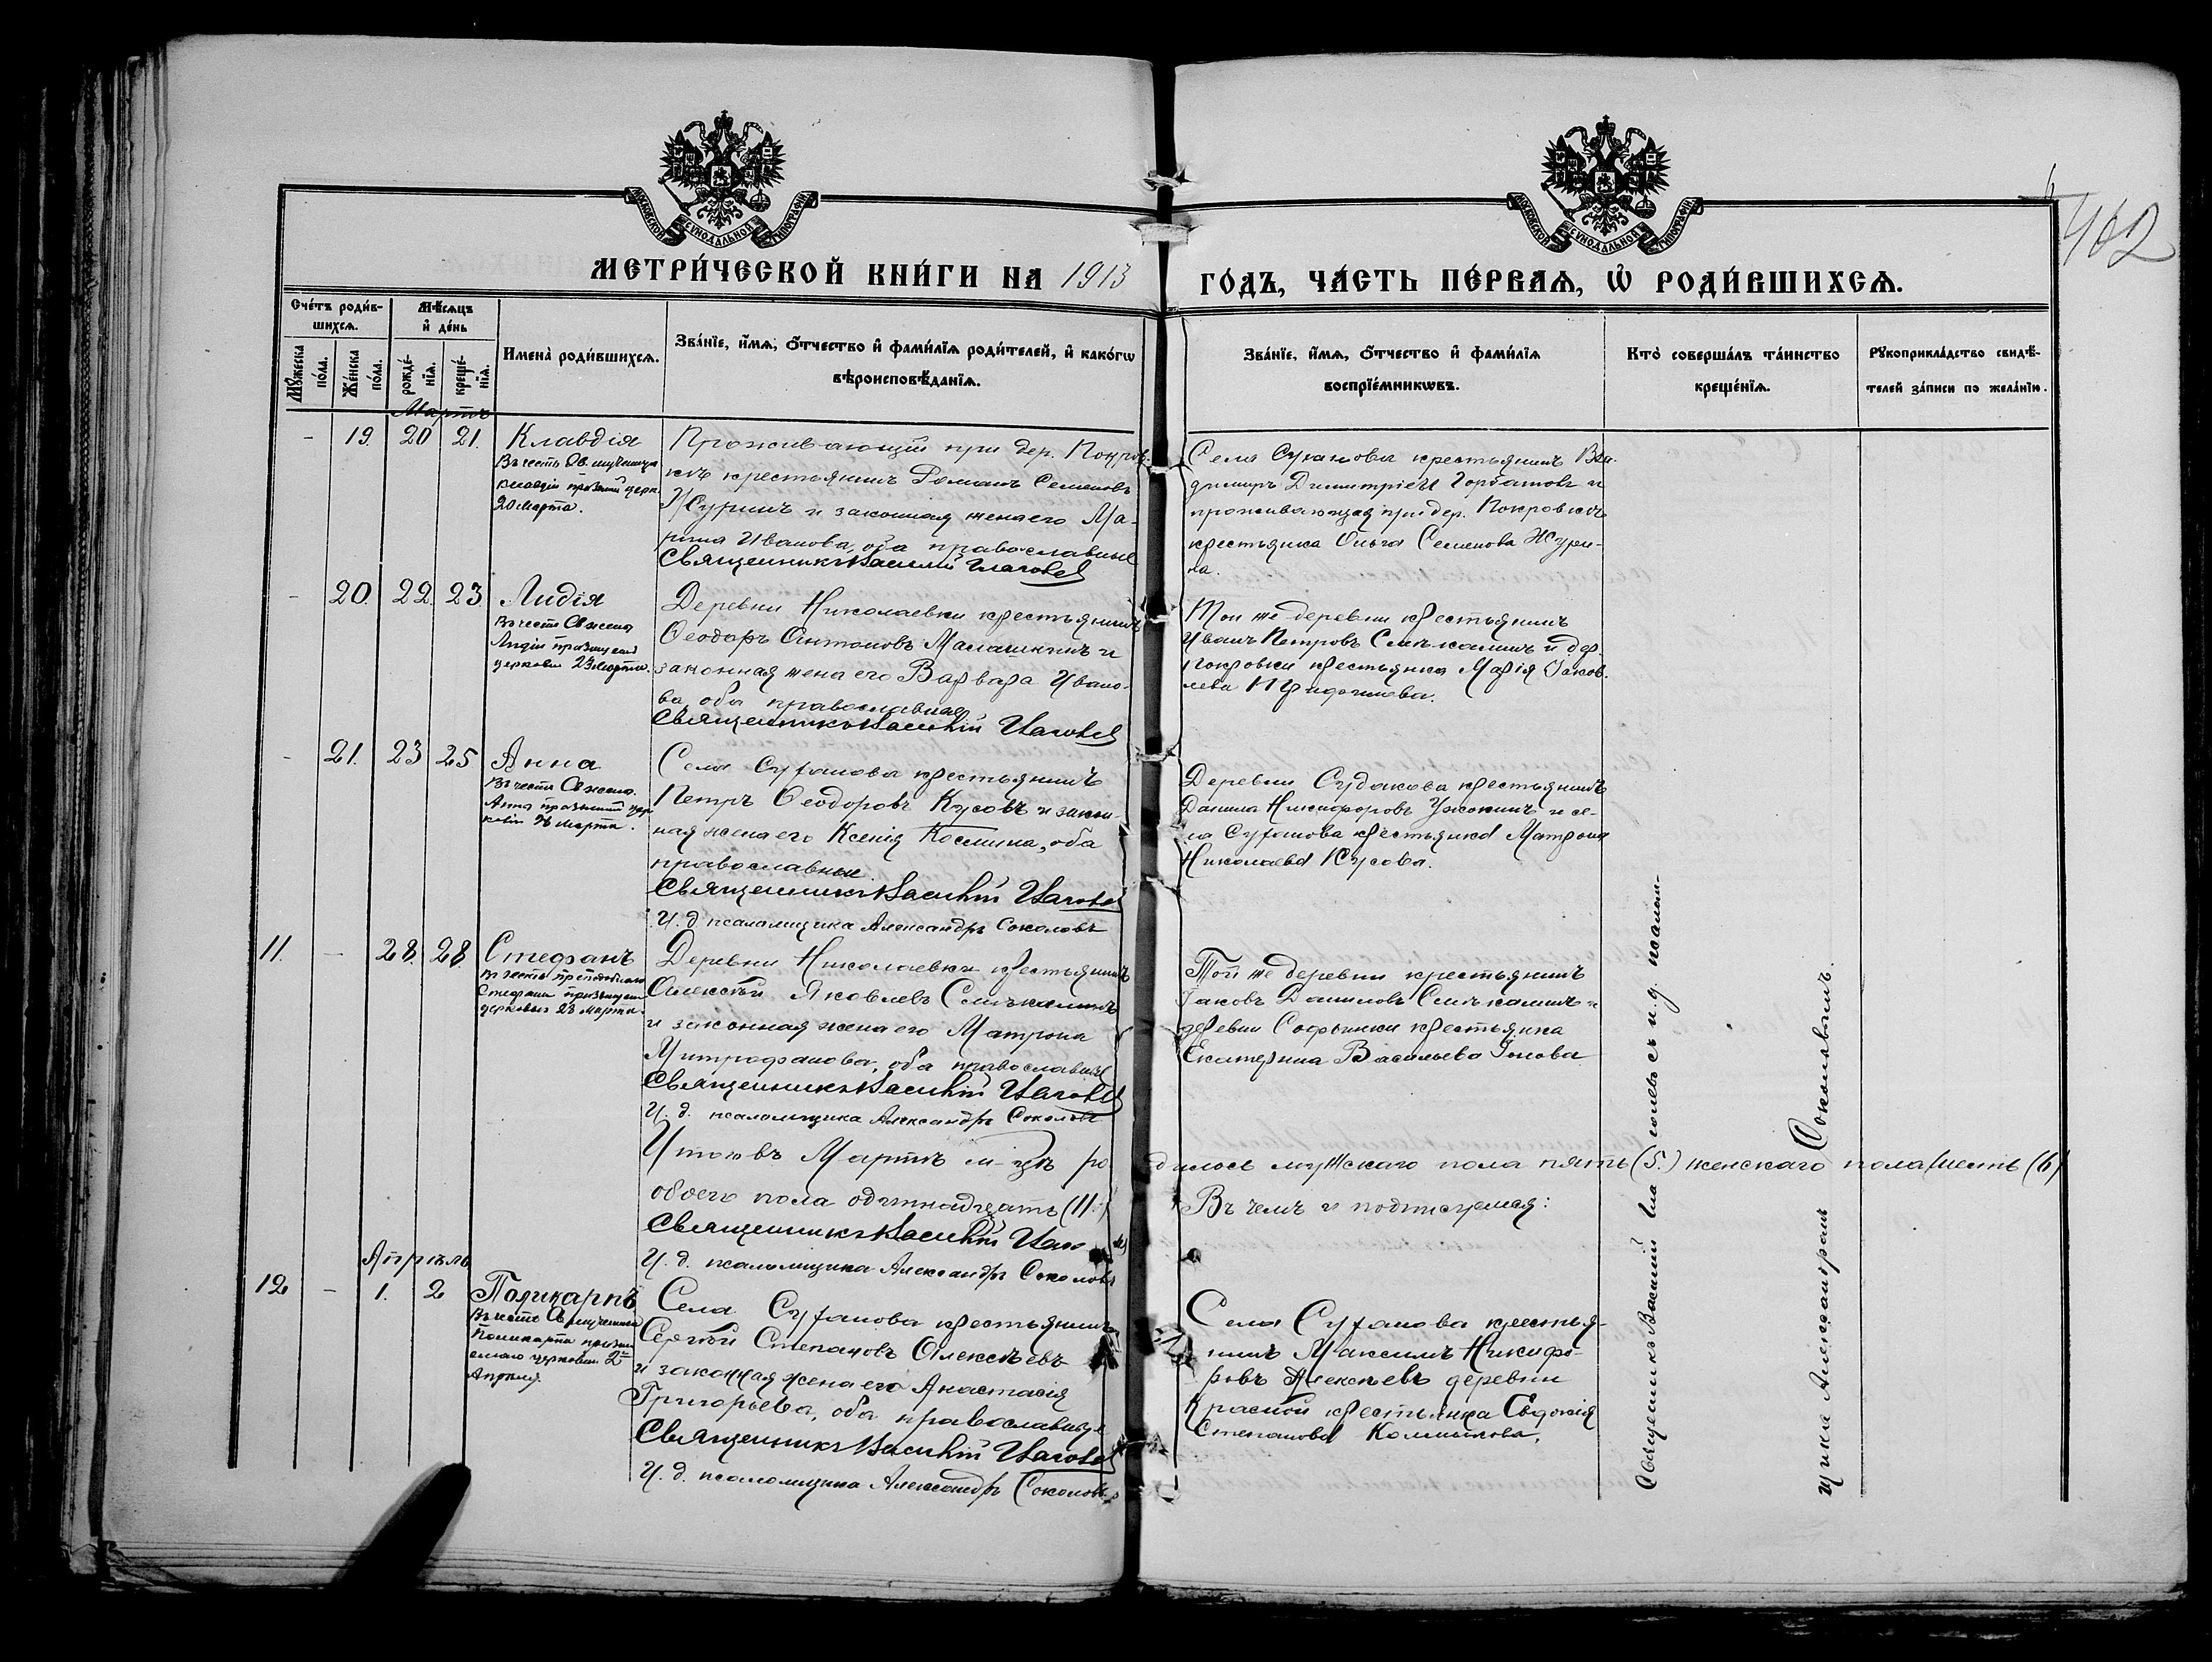 МОСКОВСКОЙ СѴНОДАЛЬНОЙ ТИПОГРАФІИ
МОСКОВСКОЙ СѴНОДАЛЬНОЙ ТИПОГРАФІИ
462
МЕТРИ́ЧЕСКОЙ КНИ́ГИ НА 1913 ГО́ДЪ, ЧА́СТЬ ПЕ́РВАѦ, Ѡ҆ РОДИ́ВШИХСѦ.
Сче́тъ роди́в-
шихсѧ.
Мꙋ́жеска по́ла.
Же́нска по́ла.
Мѣ́сѧцъ
и҆ де́нь
рожде́-
нїѧ.
креще́-
нїѧ.
Имена̀ роди́вшихсѧ.
Зва́нїе, и҆́мѧ, ѻ҆́тчество и҆ фами́лїѧ роди́телей, и҆ како́гѡ
вѣроисповѣ́данїѧ.
Зва́нїе, и҆́мѧ, ѻ҆́тчество и҆ фами́лїѧ
воспрїе́мникѡвъ.
Кто̀ соверша́лъ та́инство
креще́нїѧ.
Рꙋкоприкла́дство свидѣ́-
телей за́писи по жела́нїю.
Мартъ
- 19. 20 21. Клавдія
Въ честь Св. мученицы
Клавдіи празднуем церк.
20 Марта.
Проживающій при дер. Покров-
кѣ крестьянинъ Романъ Семеновъ
Журинъ и законная жена его Ма-
рина Иванова, оба православные
Священникъ Василій
Села Суханова крестьянинъ Вла-
димиръ Димитріевъ Горбатовъ и
проживающая при дер. Покровкѣ
крестьянка Ольга Семенова Жури-
на.
- 20. 22. 23 Лидія
Въ честь Св. жены
Лидіи празднуем
церковью 23 Марта.
Деревни Николаевки крестьянинъ
Ѳеодоръ Антоновъ Малашкинъ и
законная жена его Варвара Ивано-
ва, оба православная
Священникъ Василій
Той же деревни крестьянинъ
Иванъ Петровъ и дер.
Покровки крестьянка Марія Іаков-
лева
- 21. 23 25 Анна
Въ честь Св. жены
Анны празднуем цер-
ковію 26 Марта.
Села Суханова крестьянинъ
Петръ Ѳеодоровъ Кусовъ и закон-
ная жена его Ксенія Космина, оба
православные.
Священникъ Василій
И. д. псаломщика Александръ Соколовъ
Деревни Судакова крестьянинъ
Данила Никифоровъ и се-
ла Суханова крестьянка Матрона
Николаева Кусова.
11. - 28. 28. Стефанъ
Въ честь преподобнаго
Стефана празднуем
церковью 28 Марта.
Деревни Николаевки крестьянинъ
Алексѣй Яковлевъ
и законная жена его Матрона
Митрофанова, оба православные
Священникъ Василій
И. д. псаломщика Александръ Соколовъ
Той же деревни крестьянинъ
Іаковъ Даниловъ и
деревни Софьинки крестьянка
Екатерина Васильева
Итого въ Мартѣ м-цѣ родилось мужскаго пола пять (5.) женскаго пола шесть (6)
обоего пола одиннадцать (11.)
Въ чемъ и подписуемся:
Священникъ Василій
И. д. псаломщика Александръ Соколовъ
Апрѣль
12 - 1. 2 Поликарпъ
Въ честь Св. мученика
Поликарпа праздну-
емаго церковью 2го
Апрѣля.
Села Суханова крестьянинъ
Сергѣй Степановъ Алексѣевъ
и законная жена его Анастасія
Григорьева, оба православные
Священникъ Василій
И. д. псаломщика Александръ Соколовъ
Села Суханова крестья-
нинъ Максимъ Никифо-
ровъ Алексѣевъ деревни
Красной крестьянка Евдокія
Степанова
Священникъ Василій съ и. д. псалом-
щика Александромъ Соколовымъ.